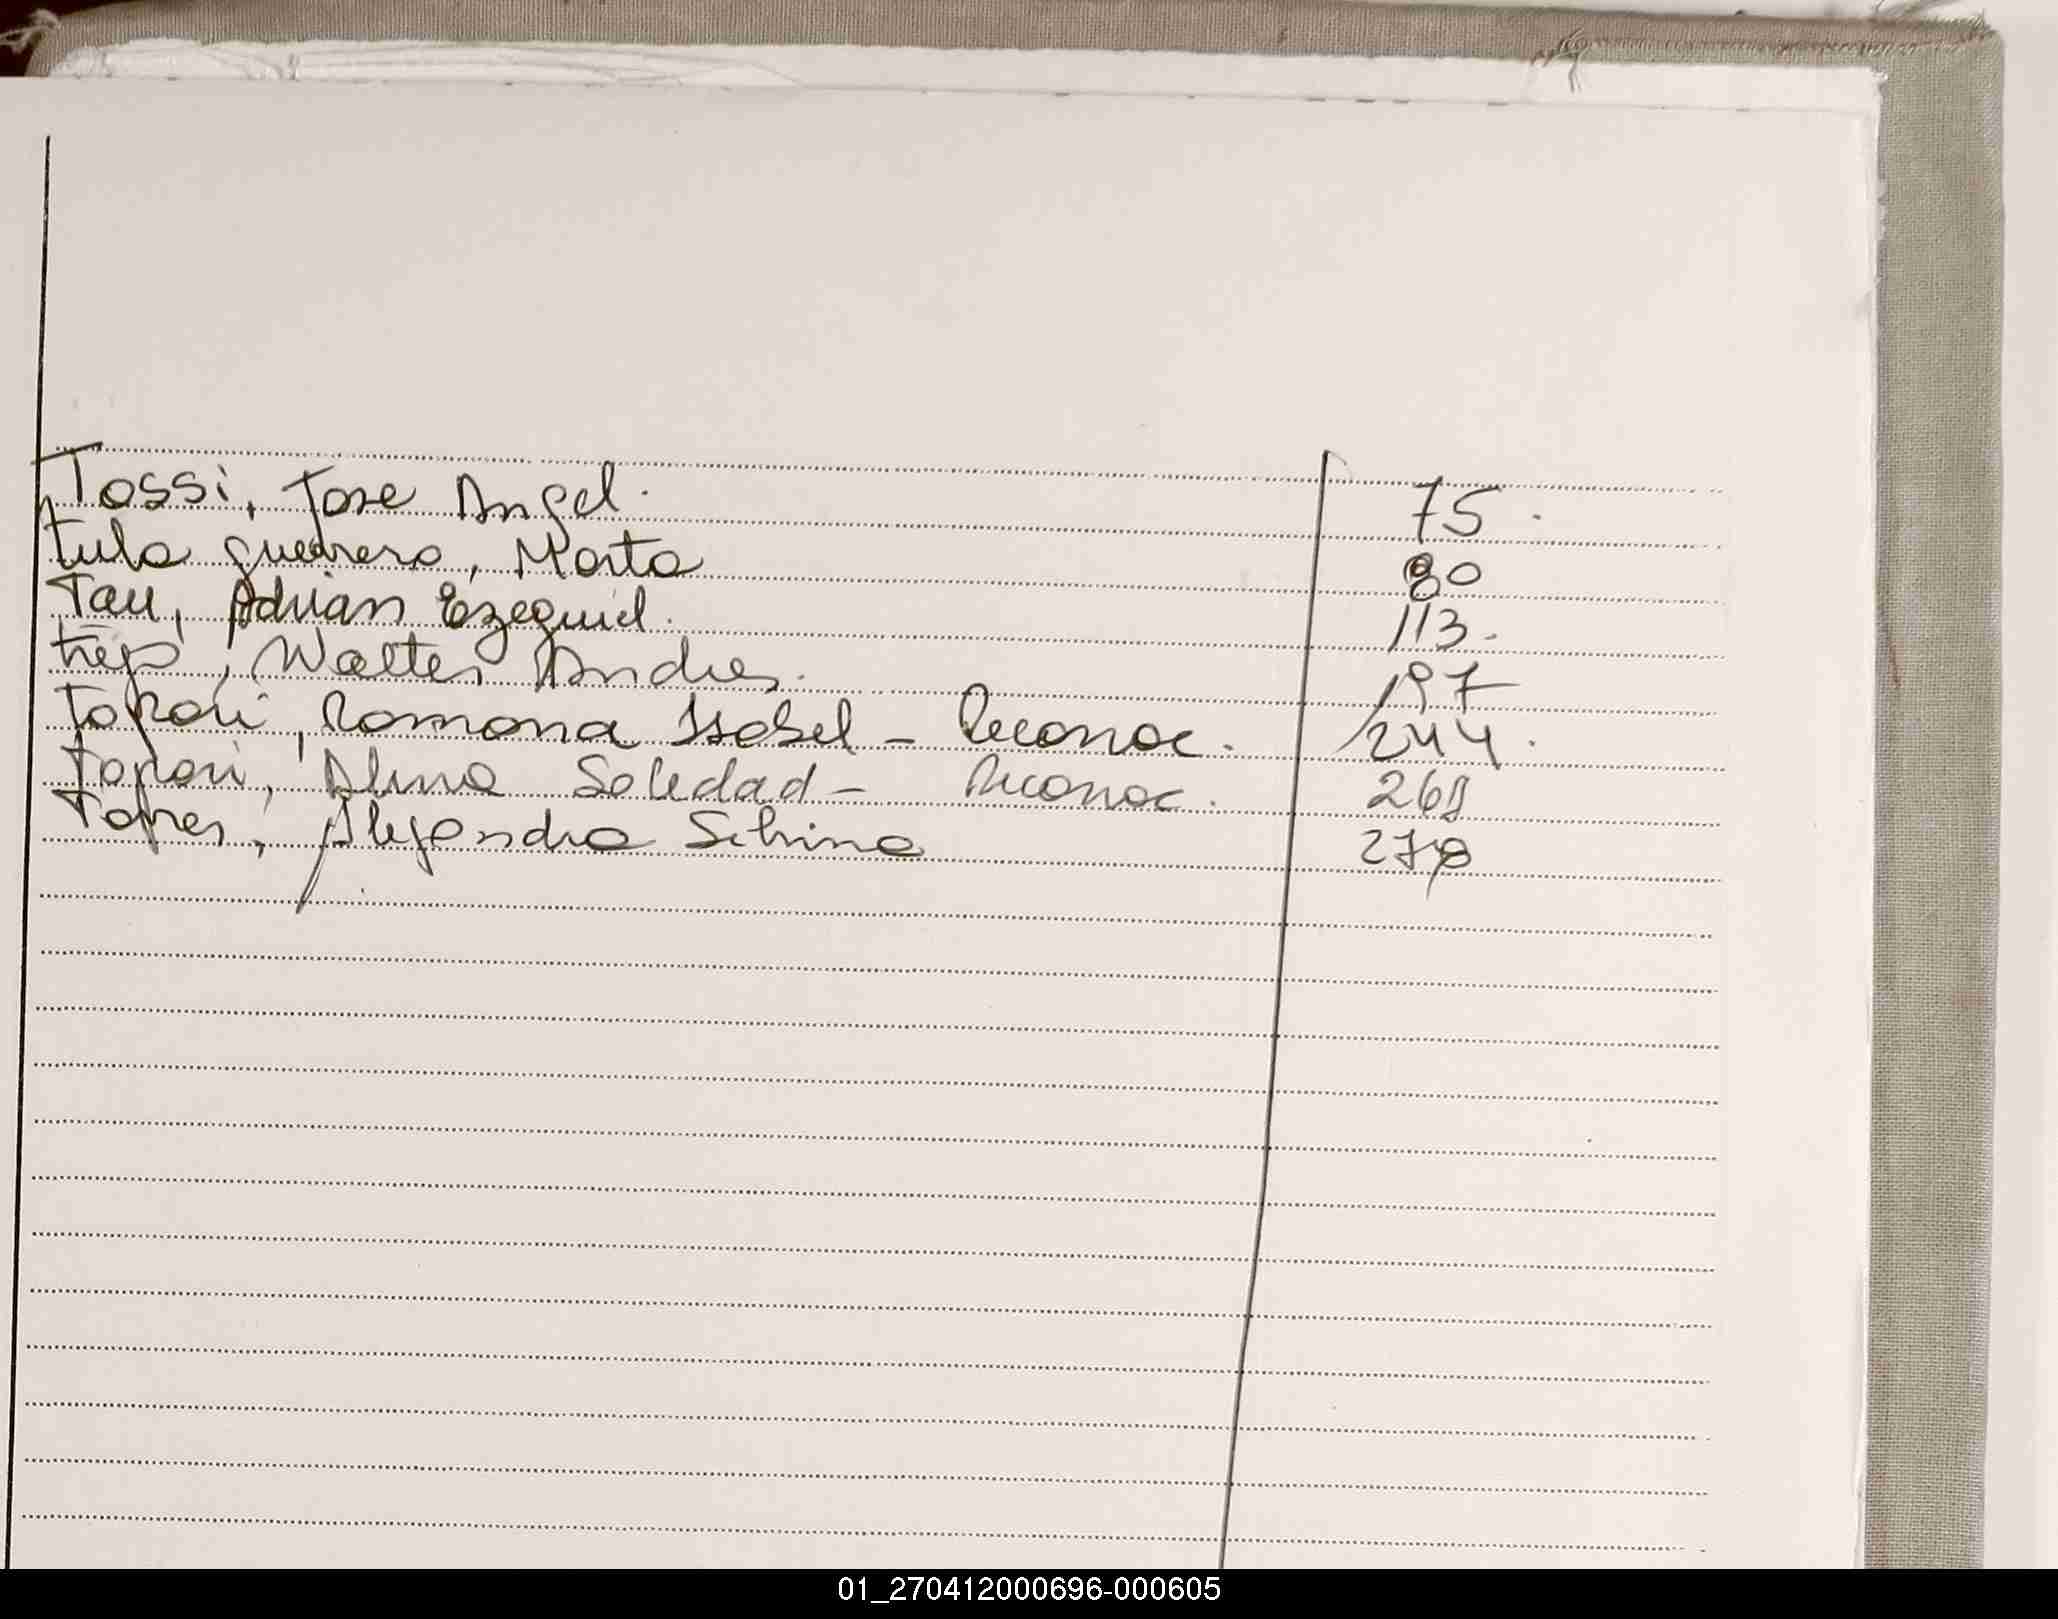 Tossi, Jose Angel. 75.
Tula guerrero, Marta 80
Tau, Adrian Ezequiel. 113.
Trejo, Walter Andres. 197
Tapari, Ramona Isabel - Reconoc. 244.
Tapari, Alma Soledad - Reconoc.
Torres, Alejandra Silvina
01_270412000696-000605